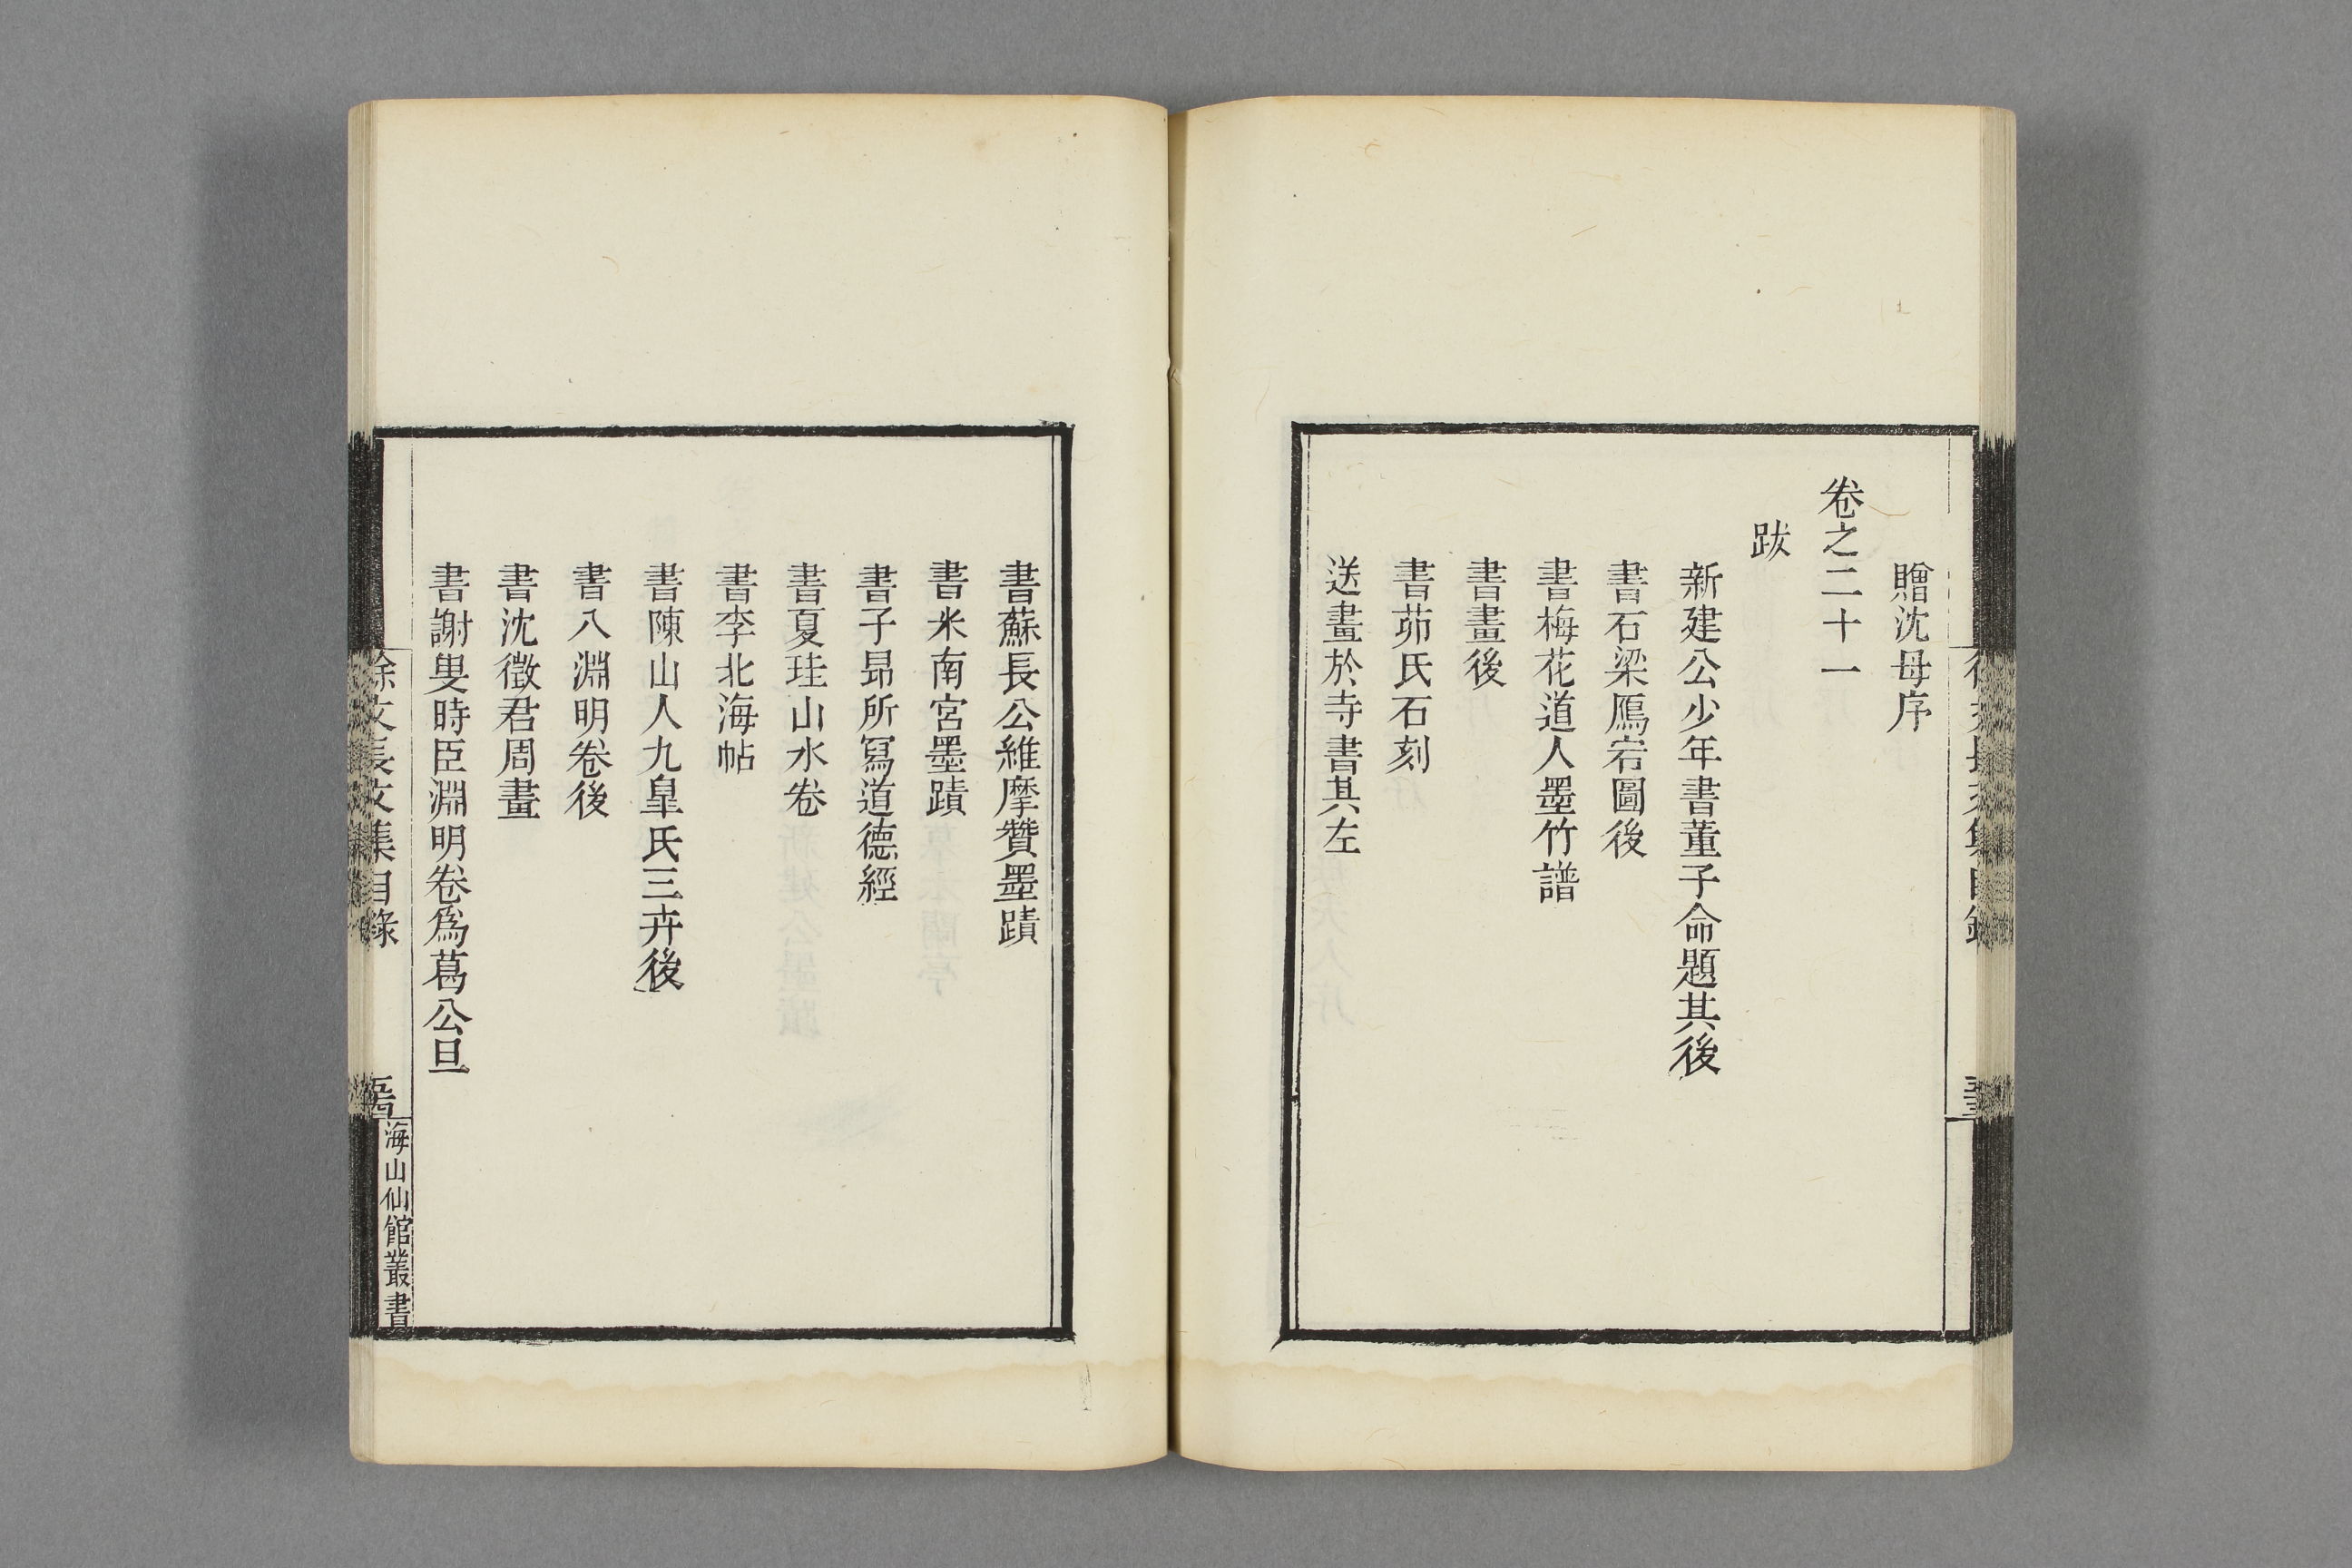 贈沈母序
卷之二十一
跋
新建公少年書董子命題其後
書石梁鴈宕圖後
書梅花道人墨竹譜
書畫後
書茆氏石刻
送畫於寺書其左
書蘇長公維摩贊墨蹟
書米南宮墨蹟
書子昻所寫道德經
書夏珪山水卷
書李北海帖
書陳山人九皐氏三卉後
書八淵明卷後
書沈徵君周畫
書謝叟時臣淵明卷爲葛公旦
徐文長文集目錄
海山仙館叢書